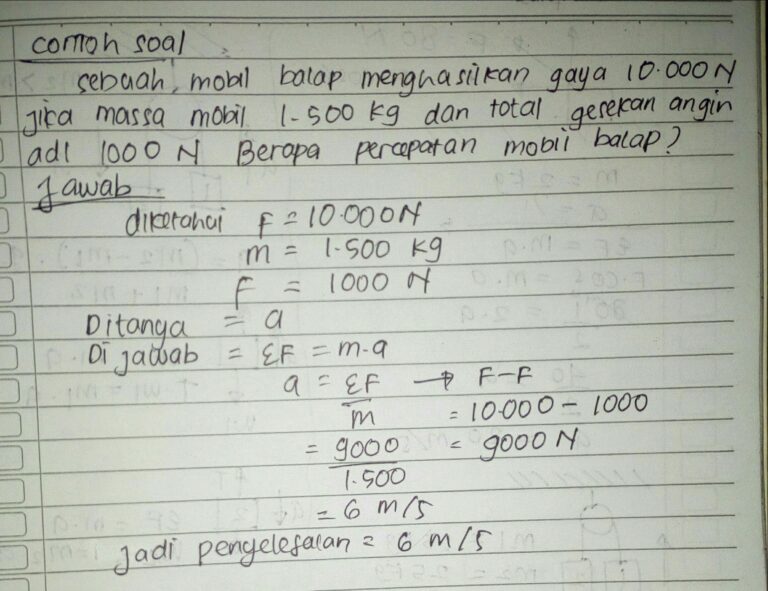 contoh soal
sebuah mobil balap menghasilkan gaya 10.000 N
jika massa mobil 1.500 kg dan total gesekan angin
adl 1000 N Berapa percepatan mobil balap?
Jawab
diketahui F = 10.000 N
m = 1.500 kg
F = 1000 N
Ditanya = a
Di jawab = ΣF = m.a
a = ΣF → F-F
m = 10.000 - 1000
= 9000 = 9000 N
1.500
= 6 m/s
Jadi penyelesaian = 6 m/s